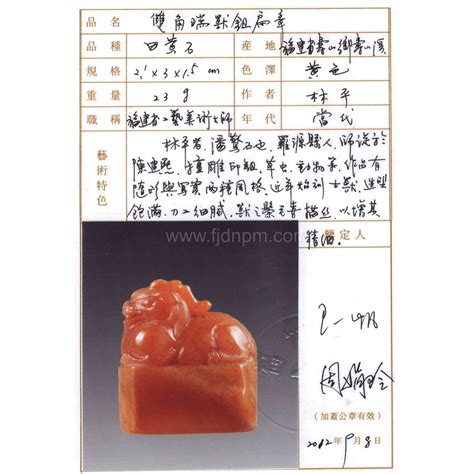 品名 雙角瑞獸鈕扁章
品種 田黄石 產地 福建省壽山鄉壽山溪
規格 2.1×3×1.5 cm 色澤 黄色
重量 23g 作者 林平
職稱 福建省工藝美術大師 年代 當代
藝術特色
林平者，潘驚石也，羅源縣人，師從于
陳建熙，擅雕印鈕，草虫、動物等，作品有
随形與写實两種風格，近年始刻古獸，造型
飽滿，刀工细膩，獸之鬃毛善描丝，以增其
精滴。
www.fjdnpm.com
鑒定人
周
(加蓋公章有效)
2012年9月8日